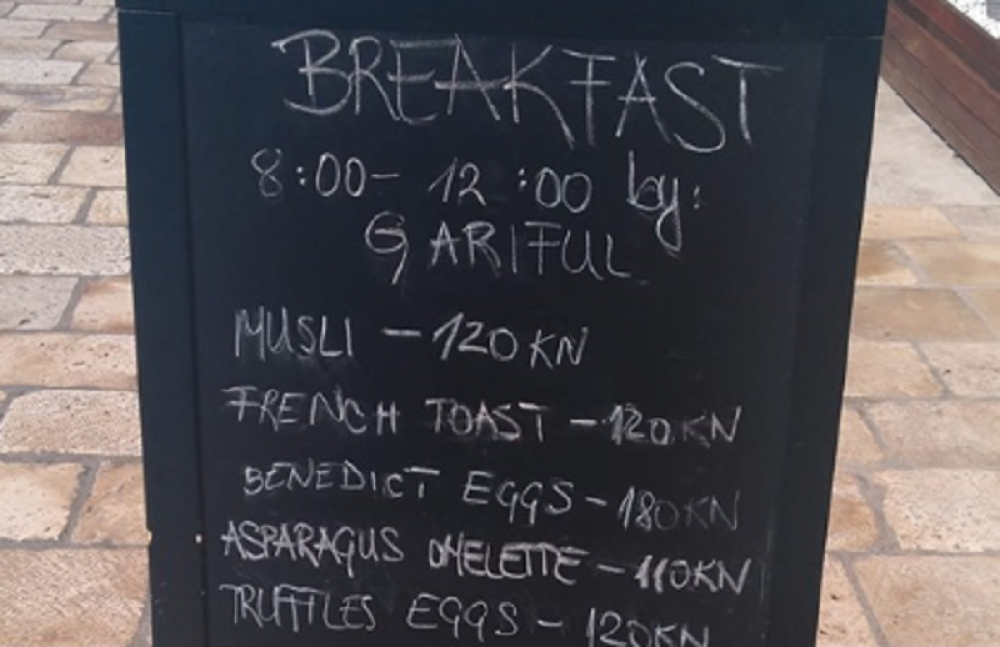 BREAKFAST
8:00- 12:00 by:
GARIFUL
MUSLI - 120 KN
FRENCH TOAST - 120 KN
BENEDICT EGGS - 180 KN
ASPARAGUS OMELETTE - 110KN
TRUFFLES EGGS - 120KN